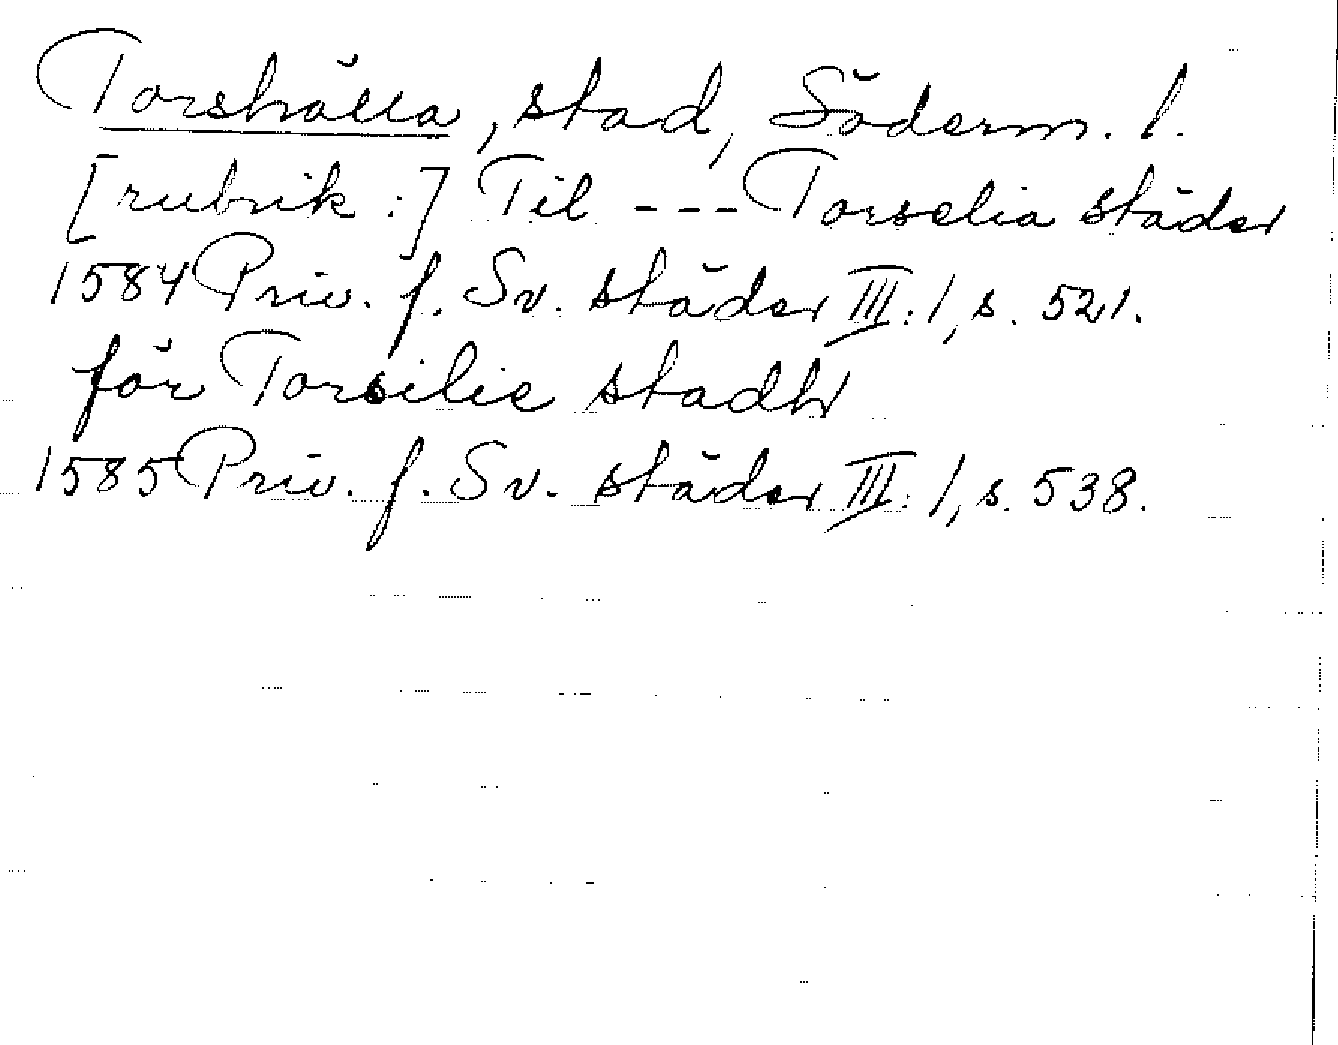 Torshälla, stad, Söderm. l.
[rubrik:] Til --- Torselia städer
1584 Priv. f. Sv. städer III:1, s. 521.
för Torsilie stadh
1585 Priv. f. Sv. städer III:1, s. 538.